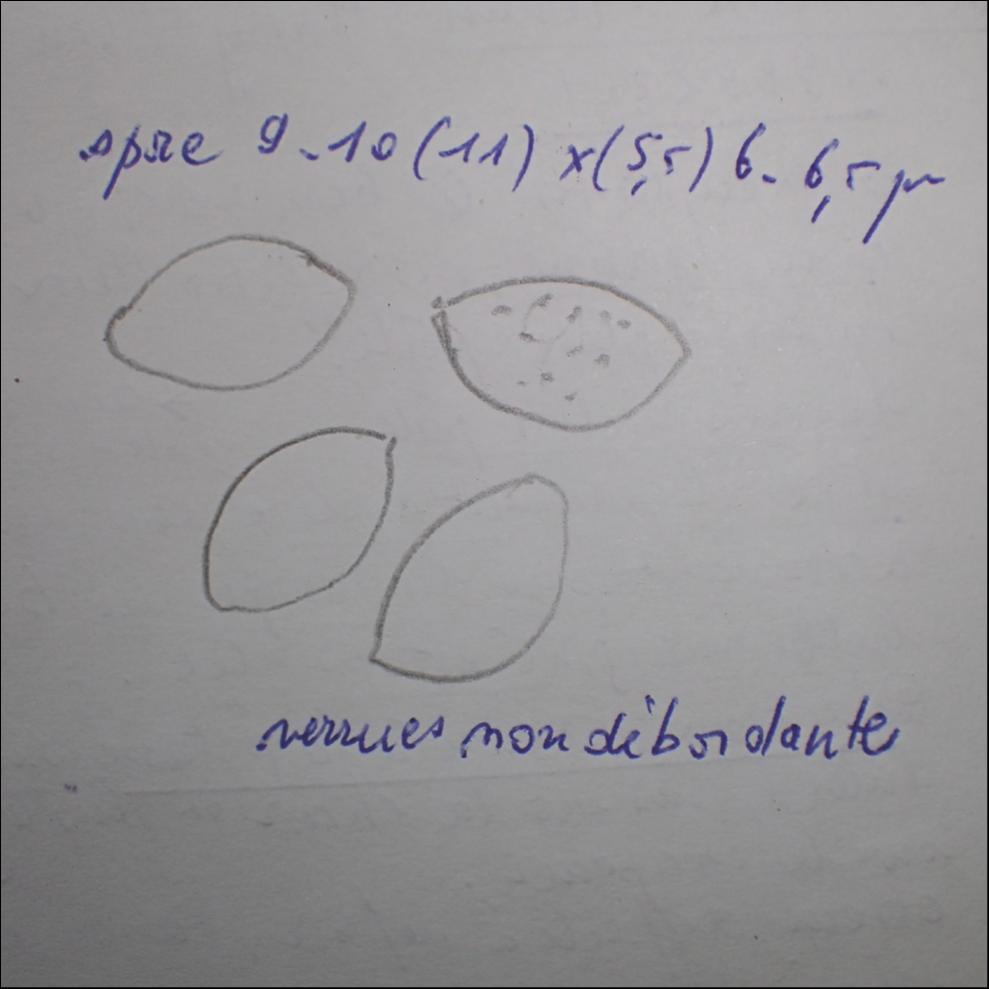 spre 9-10 (11) x (5,5) 6-6,5 µ
verrues non débordante